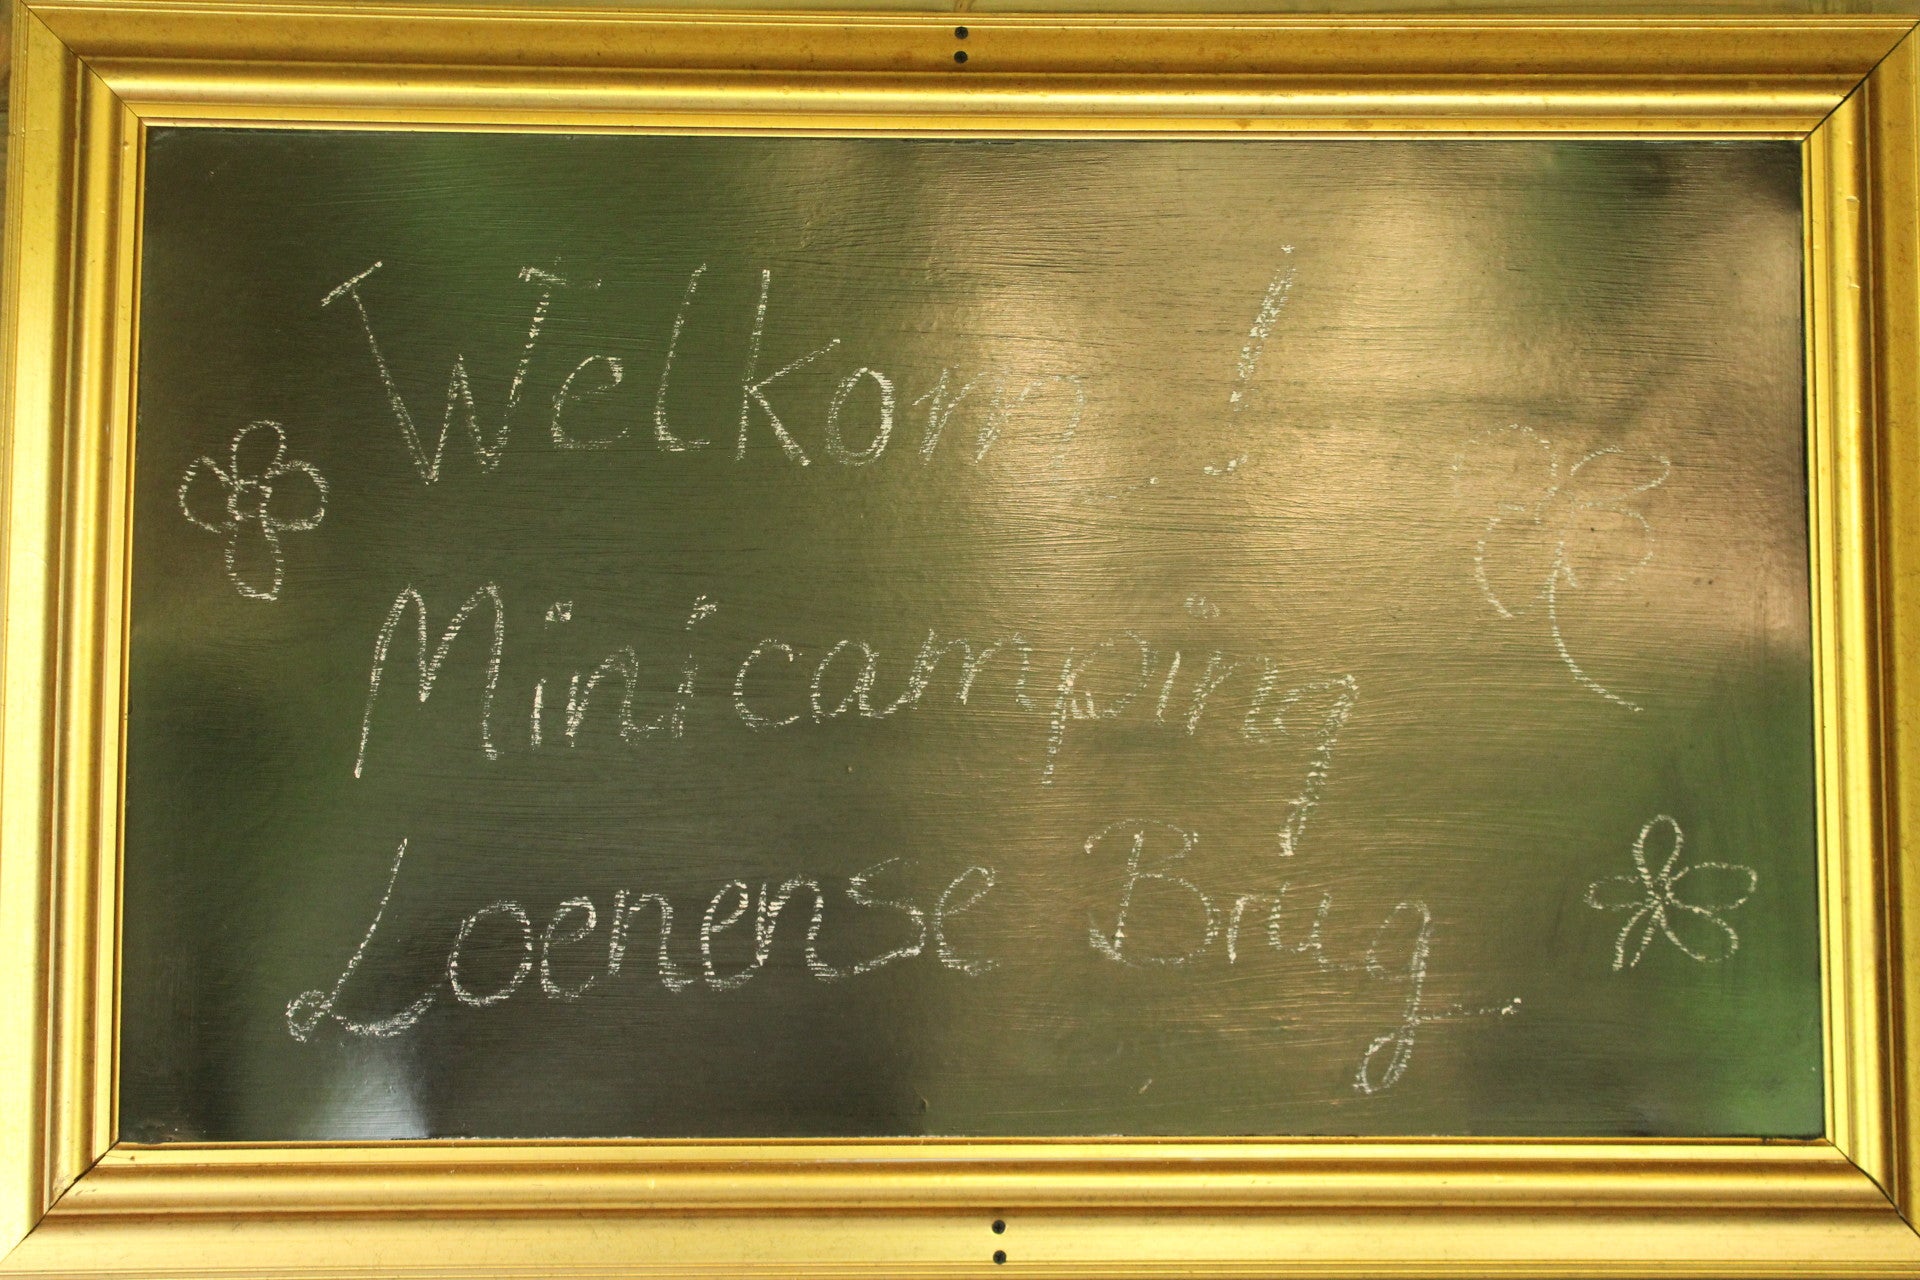 Welkom !
Minicamping
Loenense Brug